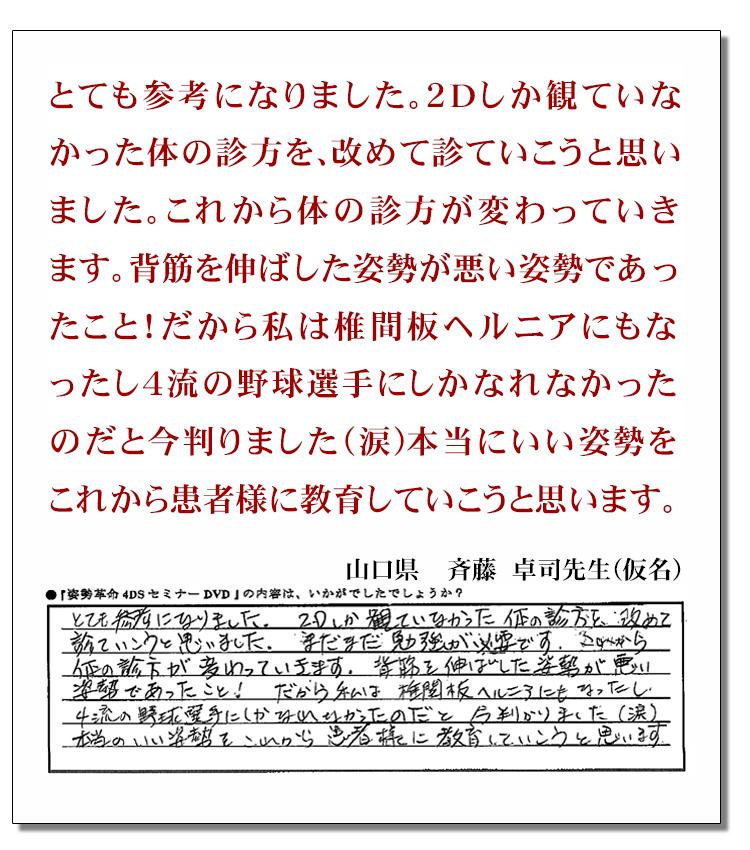 とても参考になりました。2Dしか観ていな
かった体の診方を、改めて診ていこうと思い
ました。これから体の診方が変わっていき
ます。背筋を伸ばした姿勢が悪い姿勢であっ
たこと！だから私は椎間板ヘルニアにもな
ったし4流の野球選手にしかなれなかった
のだと今判りました（涙）本当にいい姿勢を
これから患者様に教育していこうと思います。
山口県　斉藤 卓司先生（仮名）
●『姿勢革命4DSセミナーDVD』の内容は、いかがでしたでしょうか？
とても参考になりました. 2Dしか観ていなかった体の診方を、改めて
診ていこうと思いました. まだまだ勉強が必要です. これから
体の診方が変わっていきます. 背筋を伸ばした姿勢が悪い
姿勢であったこと！ だから私は椎間板ヘルニアにもなったし.
4流の野球選手にしかなれなかったのだと 今判かりました（涙）
本当のいい姿勢をこれから患者様に教育していこうと思います.